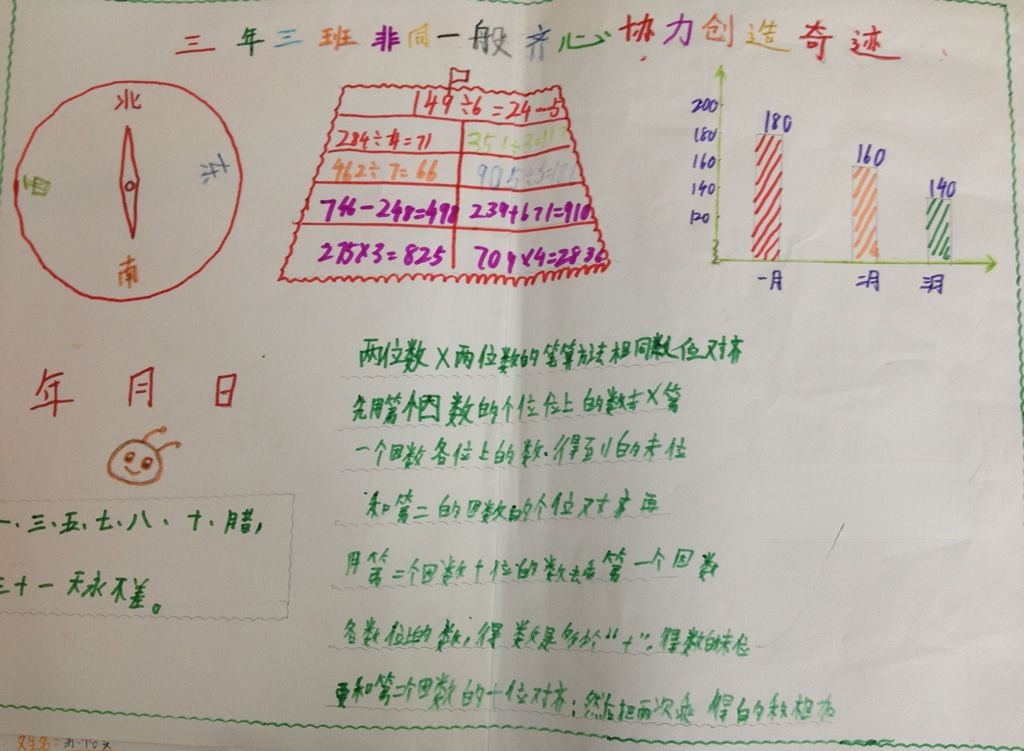 三年三班非同一般齐心协力创造奇迹
北
西
东
南
149÷6=24…5
284÷4=71
351÷3=117
462÷7=66
905÷5=181
746-248=498
239+671=910
275×3=825
709×4=2836
200
180
160
140
120
180
160
140
一月
二月
三月
年 月 日
一、三、五、七、八、十、腊，
三十一天永不差。
两位数×两位数的笔算方法相同数位对齐
先用第个因数的个位位上的数去×第
一个因数各位上的数.得到的末位
和第二的因数的个位对齐再
用第二个因数十位的数去乘第一个因数
各数位上的数，得数是多少个"十"，得数的末位
要和第二个因数的十位对齐；然后把两次乘得的积相加